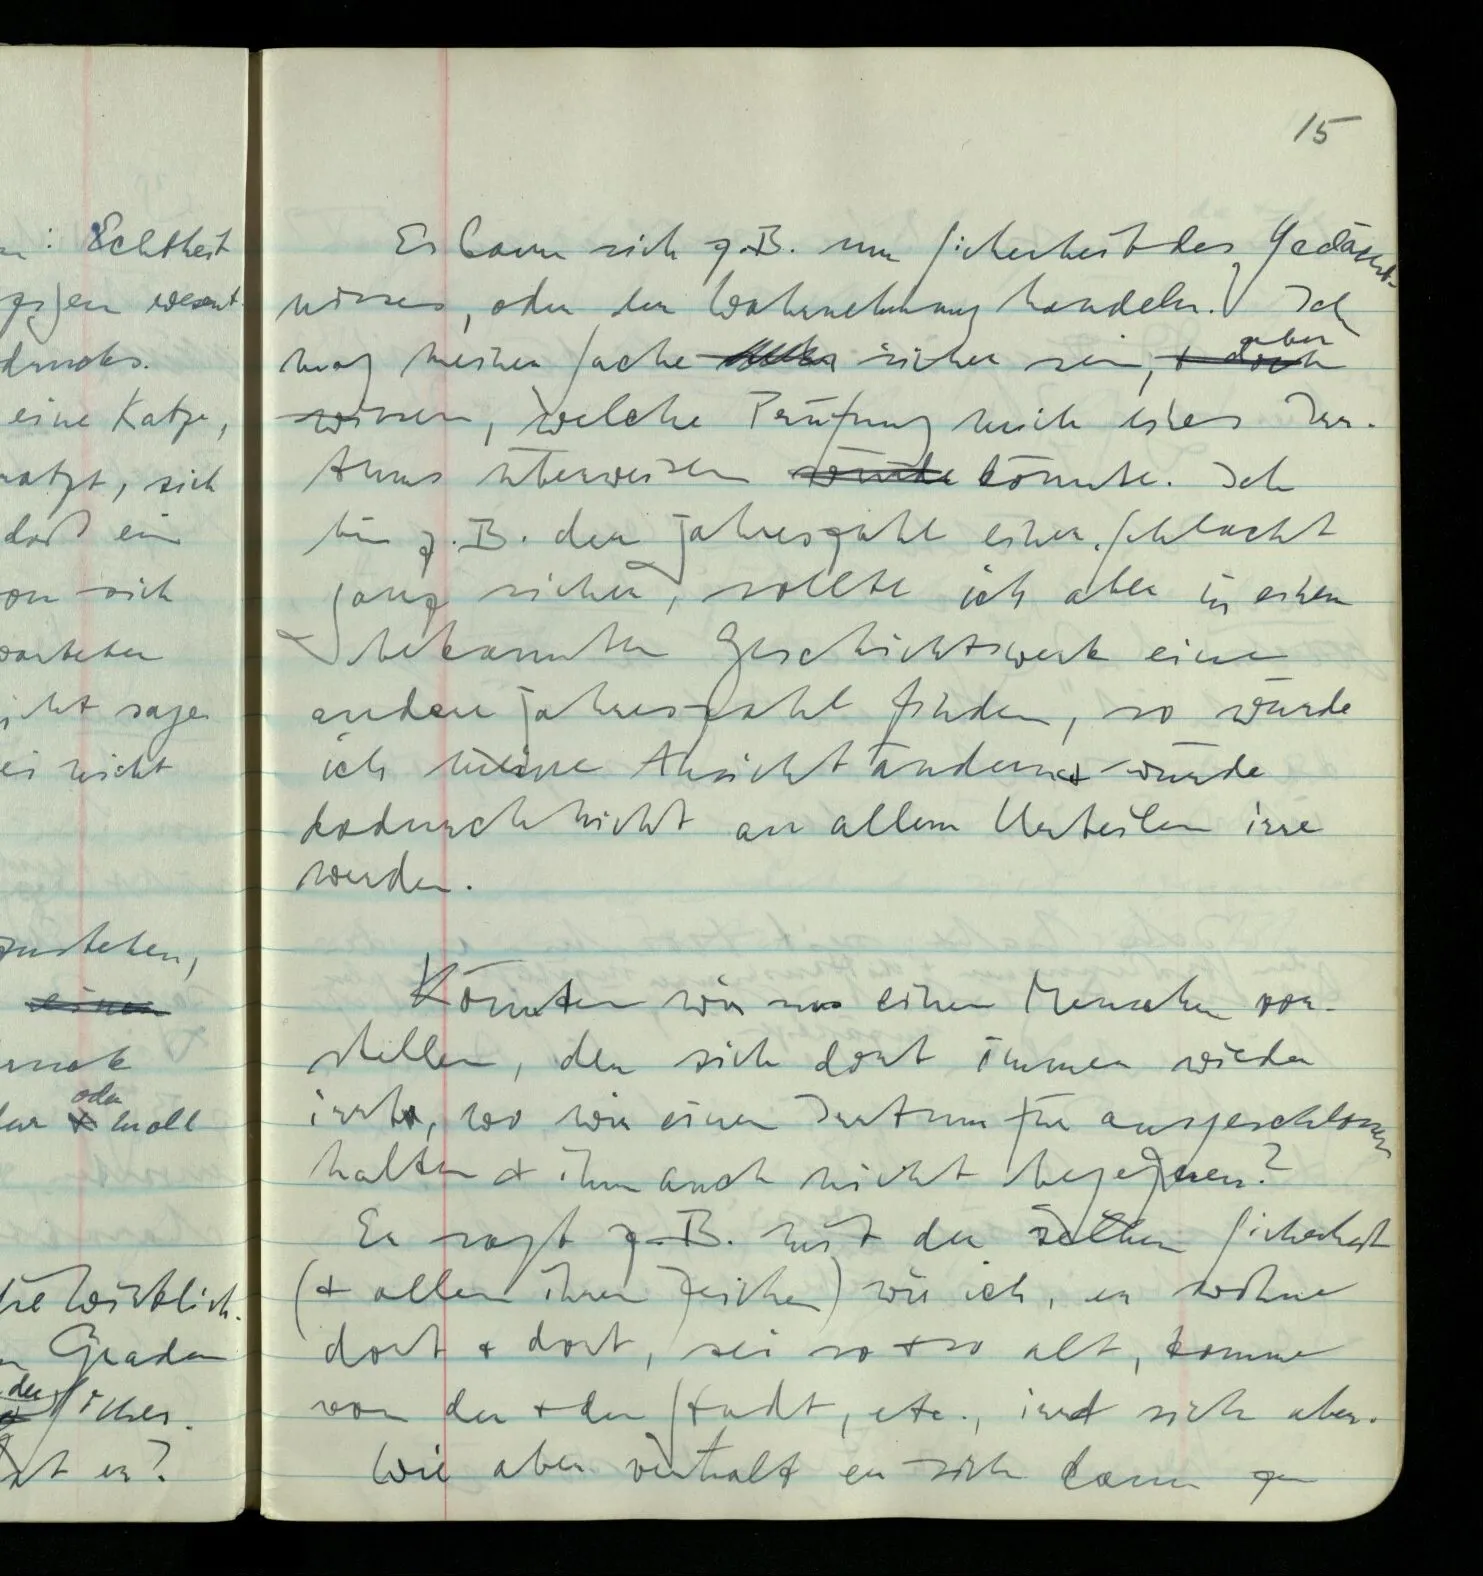 15
n: Echtheit
gegen wesent-
drucks.
eine Katze,
sich
daß ein
von sich
warteten
nicht sagen
es nicht
zustehen,
einen
oder
+ moll
wirklich.
Graden
der
sicher.
er?
Es kann sich z.B. um Sicherheit des Gedächt-
nisses, oder der Wahrnehmung handeln. Ich
mag meiner Sache sicher sein, + doch aber
wissen, welche Prüfung mich eines Irr-
tums überweisen würde könnte. Ich
bin z.B. der Jahreszahl einer Schlacht
ganz sicher, sollte ich aber in einem
bekannten Geschichtswerk eine
andere Jahreszahl finden, so würde
ich meine Ansicht ändern + würde
dadurch nicht an allem Urteilen irre
werden.
Könnten wir uns einen Menschen vor-
stellen, der sich dort immer wieder
irrt, wo wir einen Irrtum für ausgeschlossen
halten + ihm auch nicht begegnen?
Er sagt z.B. mit der selben Sicherheit
(+ allen ihren Zeichen) wie ich, er wohne
dort + dort, sei so + so alt, komme
von der + der Stadt, etc., irrt sich aber.
Wie aber verhält er sich dann zu